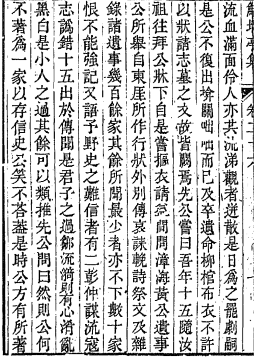 流血滿面佮人亦共流涕觀者迸散是日爲之罷劇嗣
是公不復出堦闢咄咄而已及卒遺命柳棺布衣不許
以狀請志墓之文故皆闕焉先公嘗曰吾年十五隨汝
祖往拜公牀下自是嘗摳衣請業問漳海黃公遺事
公所舉自東厓所作行狀外別傳哀誄輓詩祭文及雜
錄諸遺事幾百餘家其餘所聞最少者亦不下數十家
恨不能強記又語予野史之難信者有二彭仲謀流寇
志譌錯十五出於傳聞是君子之過鄒流漪則有心淆亂
黑白是小人之過其餘可以類推先公問曰然則公何
不著爲一家以存信史公笑不荅蓋是時公方有所著